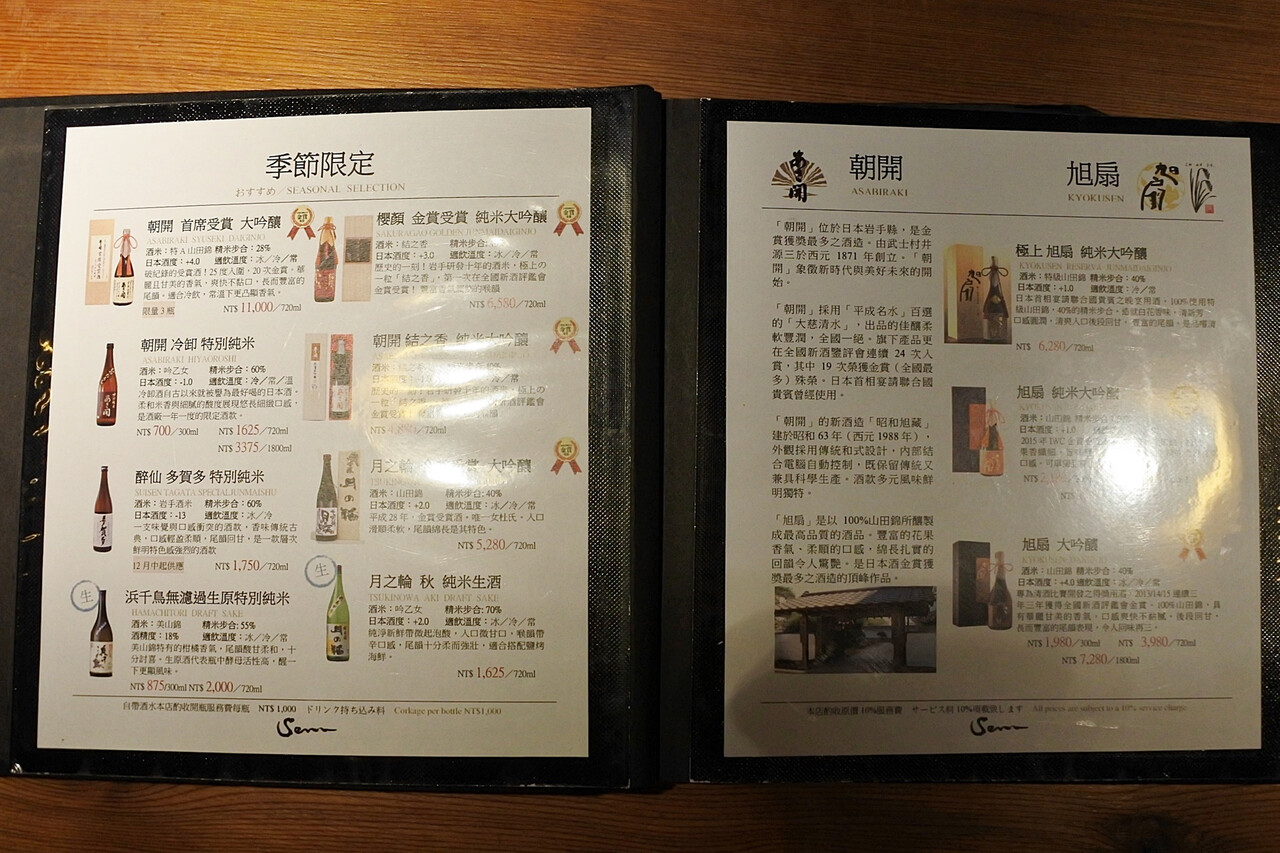 季節限定
おすすめ／SEASONAL SELECTION
朝開 首席受賞 大吟釀
ASABIRAKI SYUSEKI DAIGINJO
酒米：特A山田錦 精米步合：28%
日本酒度：+4.0 適飲溫度：冰／冷／常
破紀錄的受賞酒！25度入圍，20次金賞。華
麗且甘美的香氣，爽快不黏口，長而豐富的
尾韻。適合冷飲，常溫下更凸顯香氣。
限量3瓶 NT$ 11,000／720ml
朝開 冷卸 特別純米
ASABIRAKI HIYAOROSHI
酒米：吟乙女 精米步合：60%
日本酒度：-1.0 適飲溫度：冷／常／溫
冷卸酒自古以來就被譽為最好喝的日本酒，
柔和米香與細膩的酸度展現悠長細緻口感，
是酒廠一年一度的限定酒款。
NT$ 700／300ml NT$ 1625／720ml
NT$ 3375／1800ml
醉仙 多賀多 特別純米
SUISEN TAGATA SPECIALJUNMAISHU
酒米：岩手酒米 精米步合：60%
日本酒度：-13 適飲溫度：冰／冷
一支味覺與口感衝突的酒款，香味傳統古
典，口感輕盈柔順，尾韻回甘，是一款層次
鮮明特色感強烈的酒款
12月中起供應 NT$ 1,750／720ml
生
浜千鳥無濾過生原特別純米
HAMACHITORI DRAFT SAKE
酒米：美山錦 精米步合：55%
酒精度：18% 適飲溫度：冰／冷／常
美山錦特有的柑橘香氣，尾韻酸甘柔和，十
分討喜。生原酒代表瓶中酵母活性高，醒一
下更顯風味。
NT$ 875/300ml NT$ 2,000／720ml
櫻顏 金賞受賞 純米大吟釀
SAKURAGAO GOLDEN JUNMAIDAIGINJO
酒米：結之香 精米步合：
日本酒度：+3.0 適飲溫度：冰／冷／常
歷史的一刻！岩手研發十年的酒米，極上の
一粒「結之香」，第一次在全國新酒評鑑會
金賞受賞！
NT$ 6,580／720ml
朝開 結之香 純米大吟釀
適飲溫度：冷／常
月之輪 大吟釀
酒米：山田錦 精米步合：40%
日本酒度：+2.0 適飲溫度：冰／冷／常
平成28年，金賞受賞酒。唯一女杜氏，入口
滑順柔軟，尾韻綿長是其特色。
NT$ 5,280／720ml
生
月之輪 秋 純米生酒
TSUKINOWA AKI DRAFT SAKE
酒米：吟乙女 精米步合:70%
日本酒度：+2.0 適飲溫度：冰／冷／常
純淨新鮮帶微起泡酸，入口微甘口，喉韻帶
辛口感，尾韻十分柔而強壯，適合搭配鹽烤
海鮮。
NT$ 1,625／720ml
自帶酒水本店酌收開瓶服務費每瓶 NT$ 1,000 ドリンク持ち込み料 Corkage per bottle NT$1,000
朝開
ASABIRAKI
旭扇
KYOKUSEN
「朝開」位於日本岩手縣，是金
賞獲獎最多之酒造。由武士村井
源三於西元 1871 年創立。「朝
開」象徵新時代與美好未來的開
始。
「朝開」採用「平成名水」百選
的「大慈清水」，出品的佳釀柔
軟豐潤，全國一絕。旗下產品更
在全國新酒鑒評會連續 24 次入
賞，其中 19 次榮獲金賞（全國最
多）殊榮。日本首相宴請聯合國
貴賓曾經使用。
「朝開」的新酒造「昭和旭藏」
建於昭和 63 年（西元 1988 年），
外觀採用傳統和式設計，內部結
合電腦自動控制，既保留傳統又
兼具科學生產。酒款多元風味鮮
明獨特。
「旭扇」是以 100%山田錦所釀製
成最高品質的酒品。豐富的花果
香氣、柔順的口感，綿長扎實的
回韻令人驚艷。是日本酒金賞獲
獎最多之酒造的頂峰作品。
極上 旭扇 純米大吟釀
KYOKUSEN RESERVA JUNMAIDAIGINJO
酒米：特級山田錦 精米步合：40%
日本酒度：+1.0 適飲溫度：冷／常
日本首相宴請聯合國貴賓之晚宴用酒。100%使用特
級山田錦，40%的精米步合，
NT$ 6,280／720ml
旭扇 純米大吟釀
日本酒度：+1.0
旭扇 大吟釀
酒米：山田錦 精米步合：40%
日本酒度：+4.0 適飲溫度：冰／冷／常
NT$ 1,980／300ml NT$ 3,980／720ml
NT$ 7,280／1800ml
本店酌收原價 10%服務費 サービス料 10%頂戴致します All prices are subject to a 10% service charge.